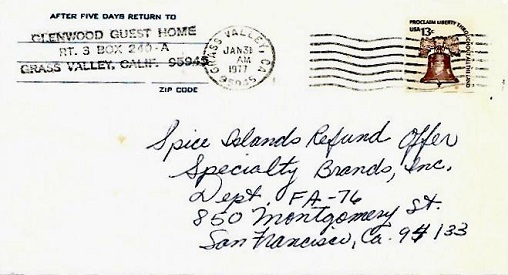 AFTER FIVE DAYS RETURN TO
GLENWOOD GUEST HOME
RT. 3 BOX 240-A
GRASS VALLEY, CALIF. 95945
ZIP CODE
GRASS VALLEY, CA
JAN 31
AM
1977
95945
PROCLAIM LIBERTY THROUGHOUT ALL THE LAND
USA 13c
Spice Islands Refund Offer
Specialty Brands, Inc.
Dept. FA-76
850 Montgomery St.
San Francisco, Ca. 94133